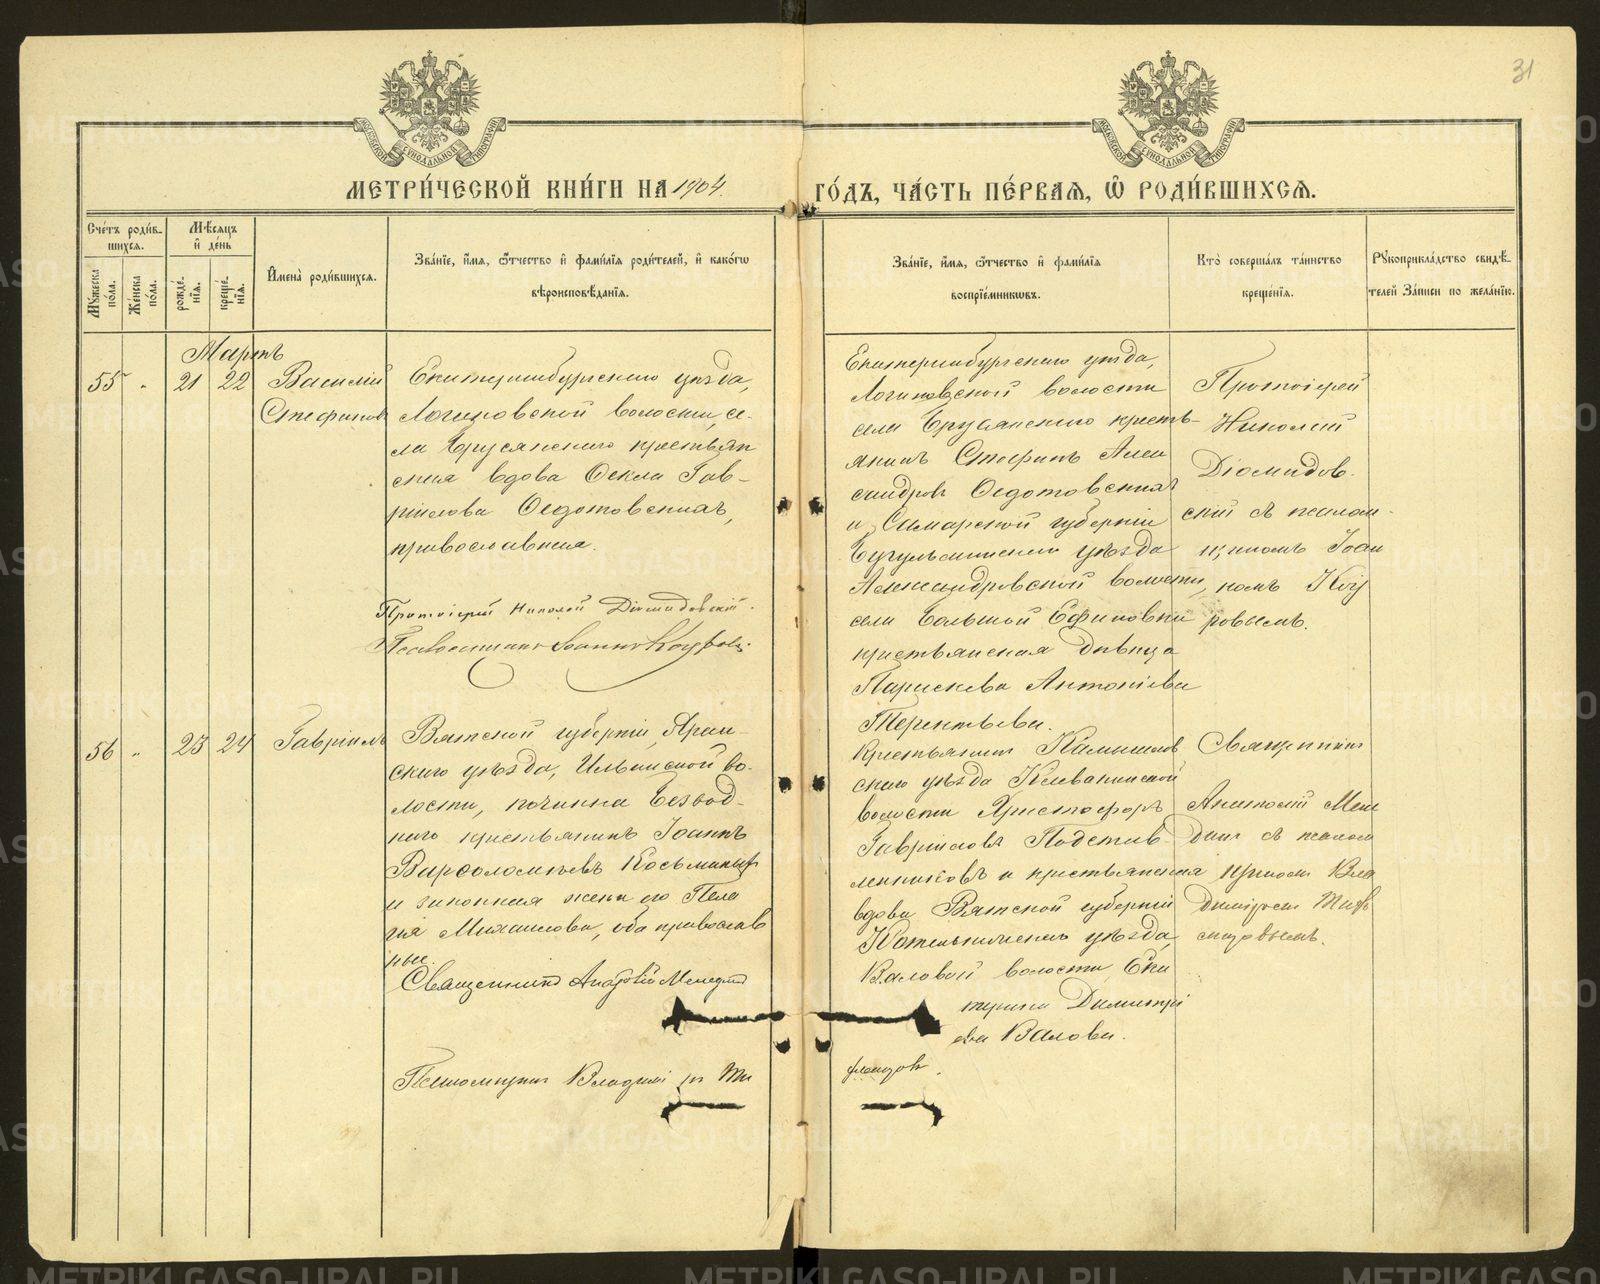 31
МЕТРИ́ЧЕСКОЙ КНИ́ГИ НА 1904.
ГО́ДЪ, ЧА́СТЬ ПЕ́РВАЯ, Ѽ РОДИ́ВШИХСЯ.
Сче́тъ роди́в-
шихся.
Мꙋ́жеска по́ла.
Же́нска по́ла.
Мѣ́сяцъ
и҆ де́нь
рожде́-
нїѧ.
креще́-
нїѧ.
И҆мена̀ роди́вшихся.
Зва́нїе, и҆́мя, ѻ҆́тчество и҆ фами́лїя роди́телей, и҆ како́гѡ
вѣроисповѣ́данїя.
Зва́нїе, и҆́мя, ѻ҆́тчество и҆ фами́лїя
воспрїе́мникѡвъ.
Кто̀ соверша́лъ та́инство
креще́нїя.
Рꙋкоприкла́дство свидѣ́-
телей за́писи по жела́нїю.
Мартъ
55 " 21 22
Василій
Стефановъ
Екатеринбургскаго уѣзда,
Логиновской волости, се-
ла Брусянскаго крестьян
ская вдова Ѳекла Гав-
ріилова Ѳедотовскихъ,
православная.
Протоіерей Николай Діомидовскій.
Псаломщикъ Іоаннъ
Екатеринбургскаго уѣзда,
Логиновской волости
села Брусянскаго кресть-
янинъ Стефанъ Алек
сандровъ Ѳедотовскихъ
и Самарской губерніи
Бугульминскаго уѣзда
Александровской волости,
села Большой Ефановки
крестьянская дѣвица
Параскева Антоніева
Терентьева.
Протоіерей
Николай
Діомидов-
скій съ псалом-
щикомъ Іоан
номъ
ровымъ.
56 " 23 24
Гавріилъ
Вятской губерніи, Яран-
скаго уѣзда, Ильинской во-
лости, починка Безвод-
наго крестьянинъ Іоаннъ
Варѳоломѣевъ Косьминыхъ
и законная жена его Пела
гія Михаилова, оба православ
ные.
Священникъ Анатолій
Псаломщикъ Владимі ръ Ти
Крестьянинъ Камышлов
скаго уѣзда Клевакинской
волости Христофоръ
Гавріиловъ Подстав-
ленниковъ и крестьянская
вдова Вятской губерніи
Котельническаго уѣзда,
Валовой волости, Ека
терина Димитрі
ева Валова.
Священникъ
Анатолій
съ псалом
щикомъ Вла
диміромъ